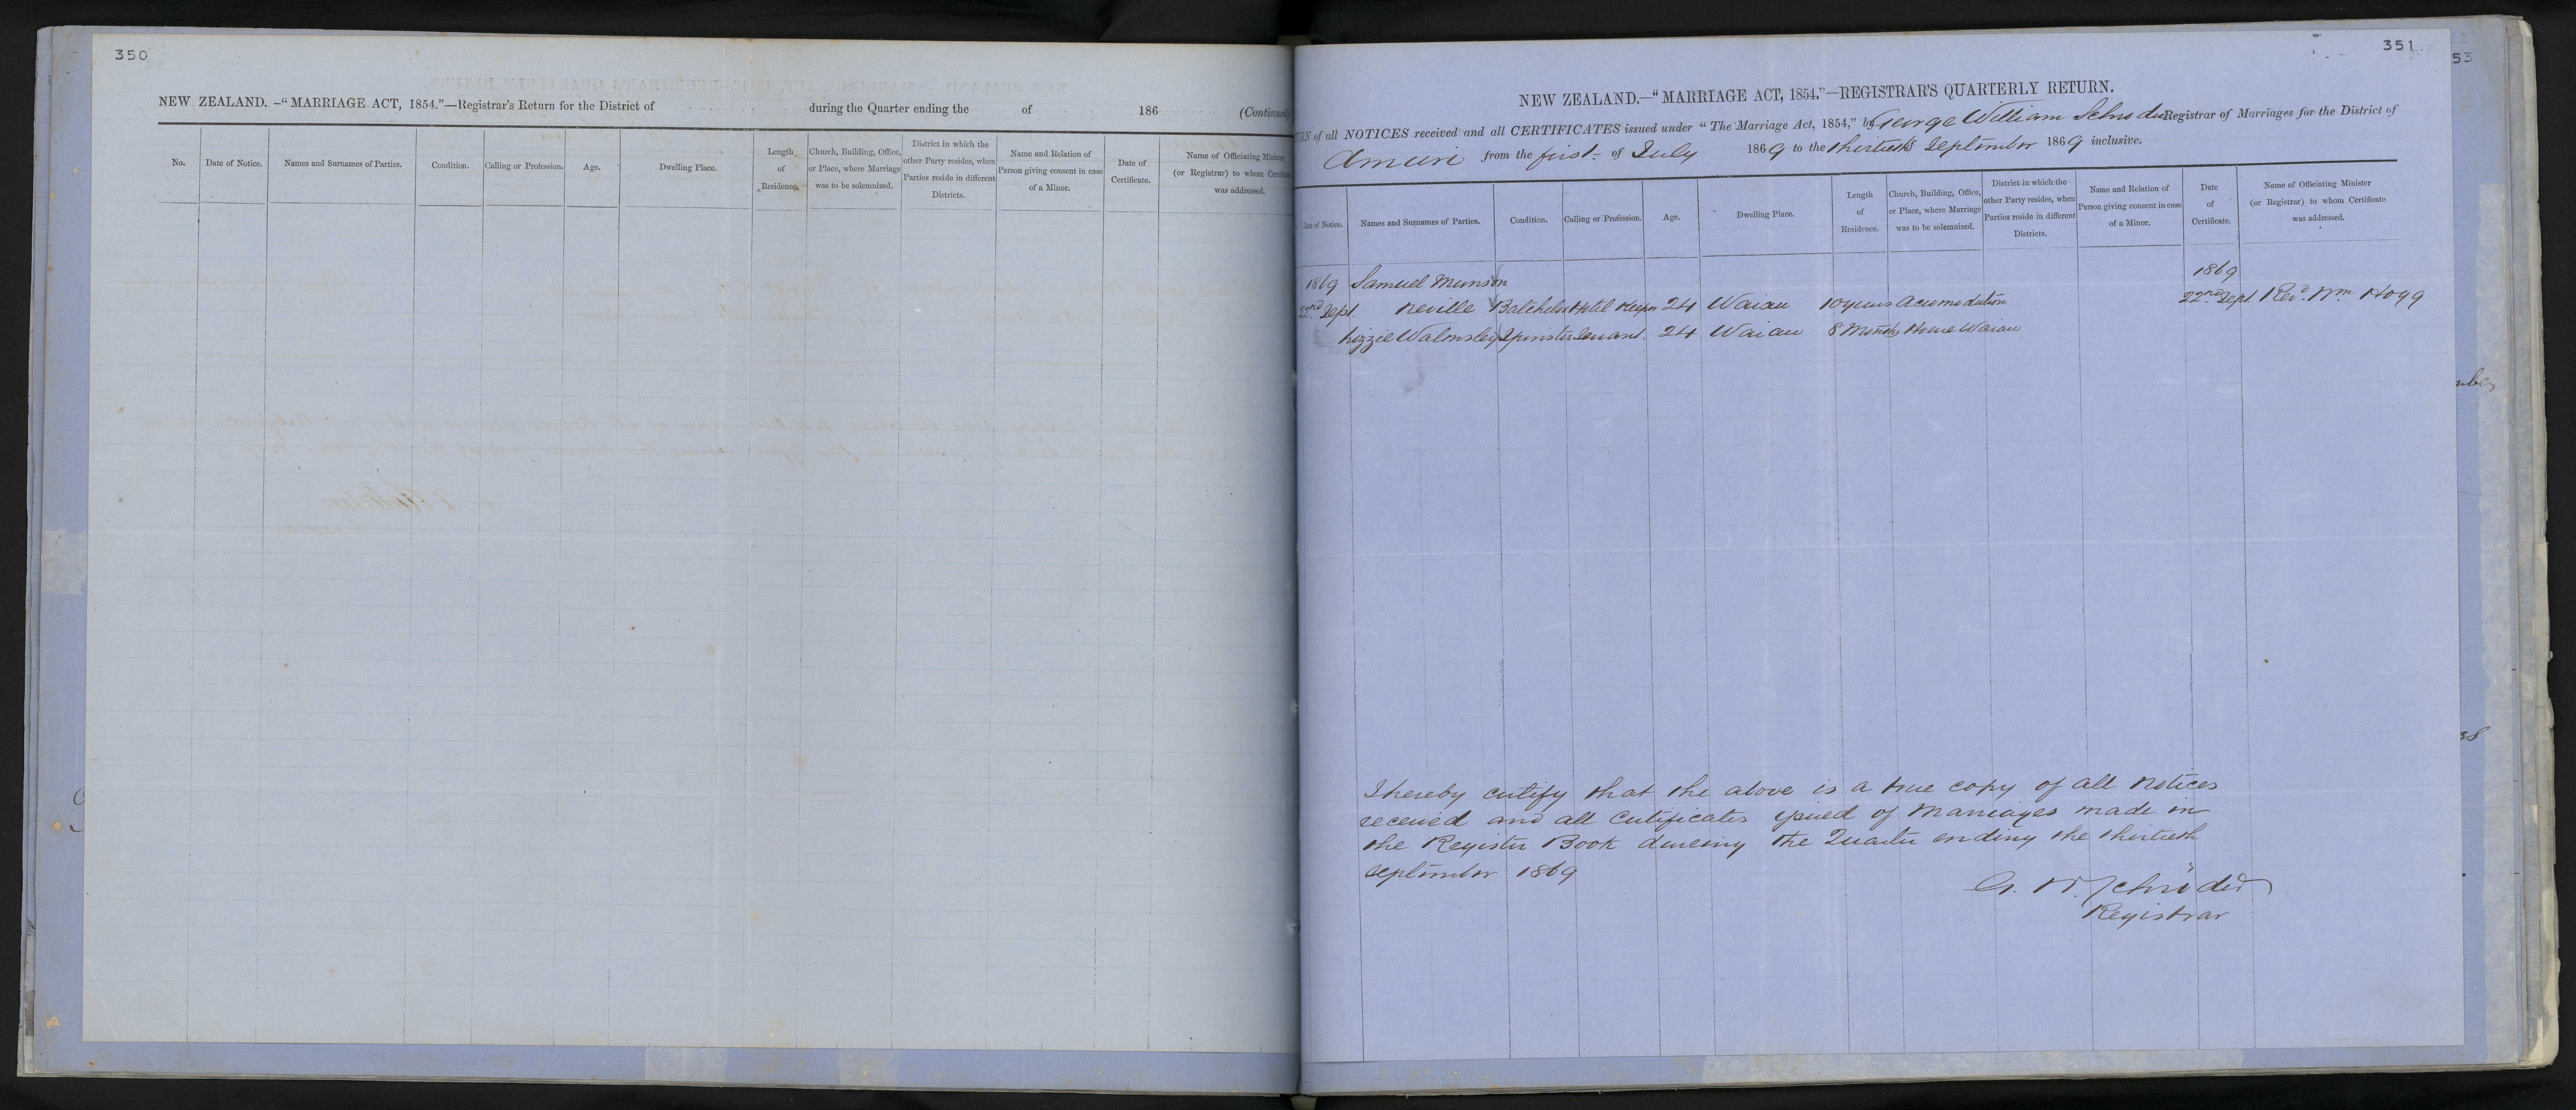 350
NEW ZEALAND.—"MARRIAGE ACT, 1854."—Registrar's Return for the District of during the Quarter ending the of 186 (Continued
No. Date of Notice. Names and Surnames of Parties. Condition. Calling or Profession. Age. Dwelling Place. Length of Residence. Church, Building, Office, or Place, where Marriage was to be solemnized. District in which the other Party resides, when Parties reside in different Districts. Name and Relation of Person giving consent in case of a Minor. Date of Certificate. Name of Officiating Minister (or Registrar) to whom Certificate was addressed.
351
53
NEW ZEALAND.—"MARRIAGE ACT, 1854."—REGISTRAR'S QUARTERLY RETURN.
of all NOTICES received and all CERTIFICATES issued under "The Marriage Act, 1854," by George William Schroder Registrar of Marriages for the District of
Amuri from the first of July 1869 to the thirtieth September 1869 inclusive.
Date of Notice. Names and Surnames of Parties. Condition. Calling or Profession. Age. Dwelling Place. Length of Residence. Church, Building, Office, or Place, where Marriage was to be solemnized. District in which the other Party resides, when Parties reside in different Districts. Name and Relation of Person giving consent in case of a Minor. Date of Certificate. Name of Officiating Minister (or Registrar) to whom Certificate was addressed.
1869 Samuel Munson 1869
22nd Sept. Neville Batchelor Hotel Keeper 24 Waiau 10 years Acumodation 22nd Sept. Revd. Wm Hogg
Lizzie Walmsley Spinster Servant. 24 Waiau 8 Months House Waiau
I hereby certify that the above is a true copy of all notices
received and all Certificates issued of Marriages made in
the Register Book dureing the Quarter ending the thirtieth
September 1869
G. W. Schröder
Registrar